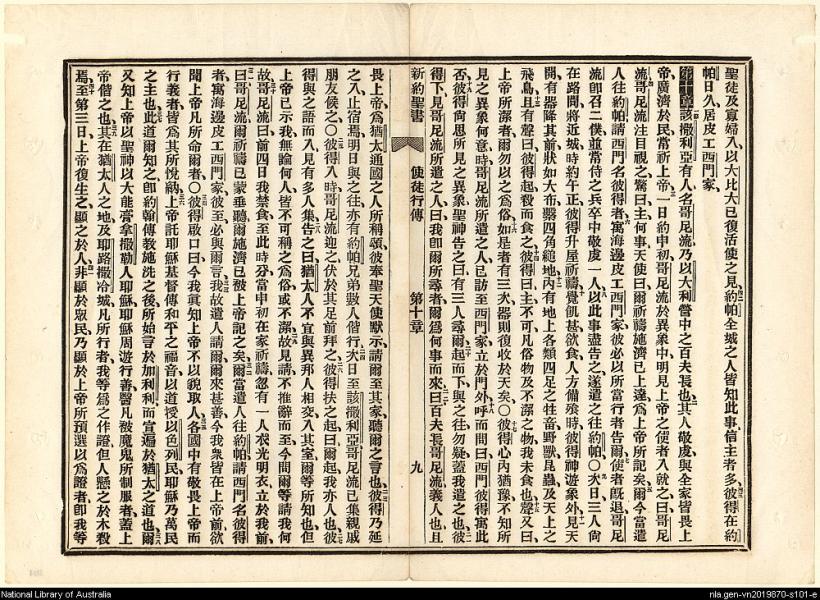 聖徒及寡婦入以大比大已復活使之見約帕全城之人皆知此事信主者多彼得在約
帕日久居皮工西門家
第十章該撒利亞有人名哥尼流乃以大利營中之百夫長也其人敬虔與全家皆畏上
帝廣濟於民常祈上帝一日約申初哥尼流於異象中明見上帝之使者入就之曰哥尼
流哥尼流注目視之驚曰主何事天使曰爾祈禱施濟已上達爲上帝所記矣爾今當遣
人往約帕請西門名彼得者寓海邊皮工西門家彼必以所當行者告爾使者既退哥尼
流即召二僕並常侍之兵卒中敬虔一人以此事盡告之遂遣之往約帕〇次日三人尙
在路間將近城時約午正彼得升屋祈禱覺飢甚欲食人方備飧時彼得神遊象外見天
開有器降其前狀如大布器四角縋地內有地上各類四足之牲畜野獸昆蟲及天上之
飛鳥且有聲曰彼得起殺而食之彼得曰主不可凡俗物及不潔之物我未食也聲又曰
上帝所潔者爾勿以之爲俗如是者有三次器則復收於天矣〇彼得心內猶豫不知所
見之異象何意時哥尼流所遣之人已訪至西門家立於門外呼而問曰西門彼得寓此
否彼得尙思所見之異象聖神告之曰有三人尋爾起而下與之往勿疑蓋我遣之也彼
得下見哥尼流所遣之人曰我即爾所尋者爾爲何事而來曰百夫長哥尼流義人也且
新約聖書 使徒行傳 第十章 九
畏上帝爲猶太通國之人所稱頌彼奉聖天使默示請爾至其家聽爾之言也彼得乃延
之入止宿焉明日與之往亦有約帕兄弟數人偕行次日至該撒利亞哥尼流已集親戚
朋友俟之〇彼得入時哥尼流迎之伏於其足前拜之彼得扶之起曰爾起我亦人也彼
得與之語而入見有多人集告之曰猶太人不宜與異邦人相交入其室爾等所知也但
上帝已示我無論何人皆不可稱之爲俗或不潔故見請不推辭而至今問爾等請我何
故哥尼流曰前四日我禁食至此時分當申初在家祈禱忽有一人衣光明衣立於我前
曰哥尼流爾祈禱已蒙垂聽爾施濟已被上帝記之矣爾當遣人往約帕請西門名彼得
者寓海邊皮工西門家彼至必與爾言我故遣人請爾爾來甚善今我衆皆在上帝前欲
聞上帝凡所命爾者〇彼得啟口曰今我眞知上帝不以貌取人各國中有敬畏上帝而
行義者皆爲其所悅納上帝託耶穌基督傳和平之福音以道授以色列民耶穌乃萬民
之主也此道爾知之即約翰傳教施洗之後所始言於加利利而宣遍於猶太之道也爾
又知上帝以聖神以大能膏拿撒勒人耶穌耶穌周遊行善醫凡被魔鬼所制服者蓋上
帝偕之也其在猶太人之地及耶路撒冷城凡所行者我等爲之作證但人懸之於木殺
焉至第三日上帝復生之顯之於人非顯於衆民乃顯於上帝所預選以爲證者即我等
National Library of Australia
nla.gen-vn2019870-s101-e